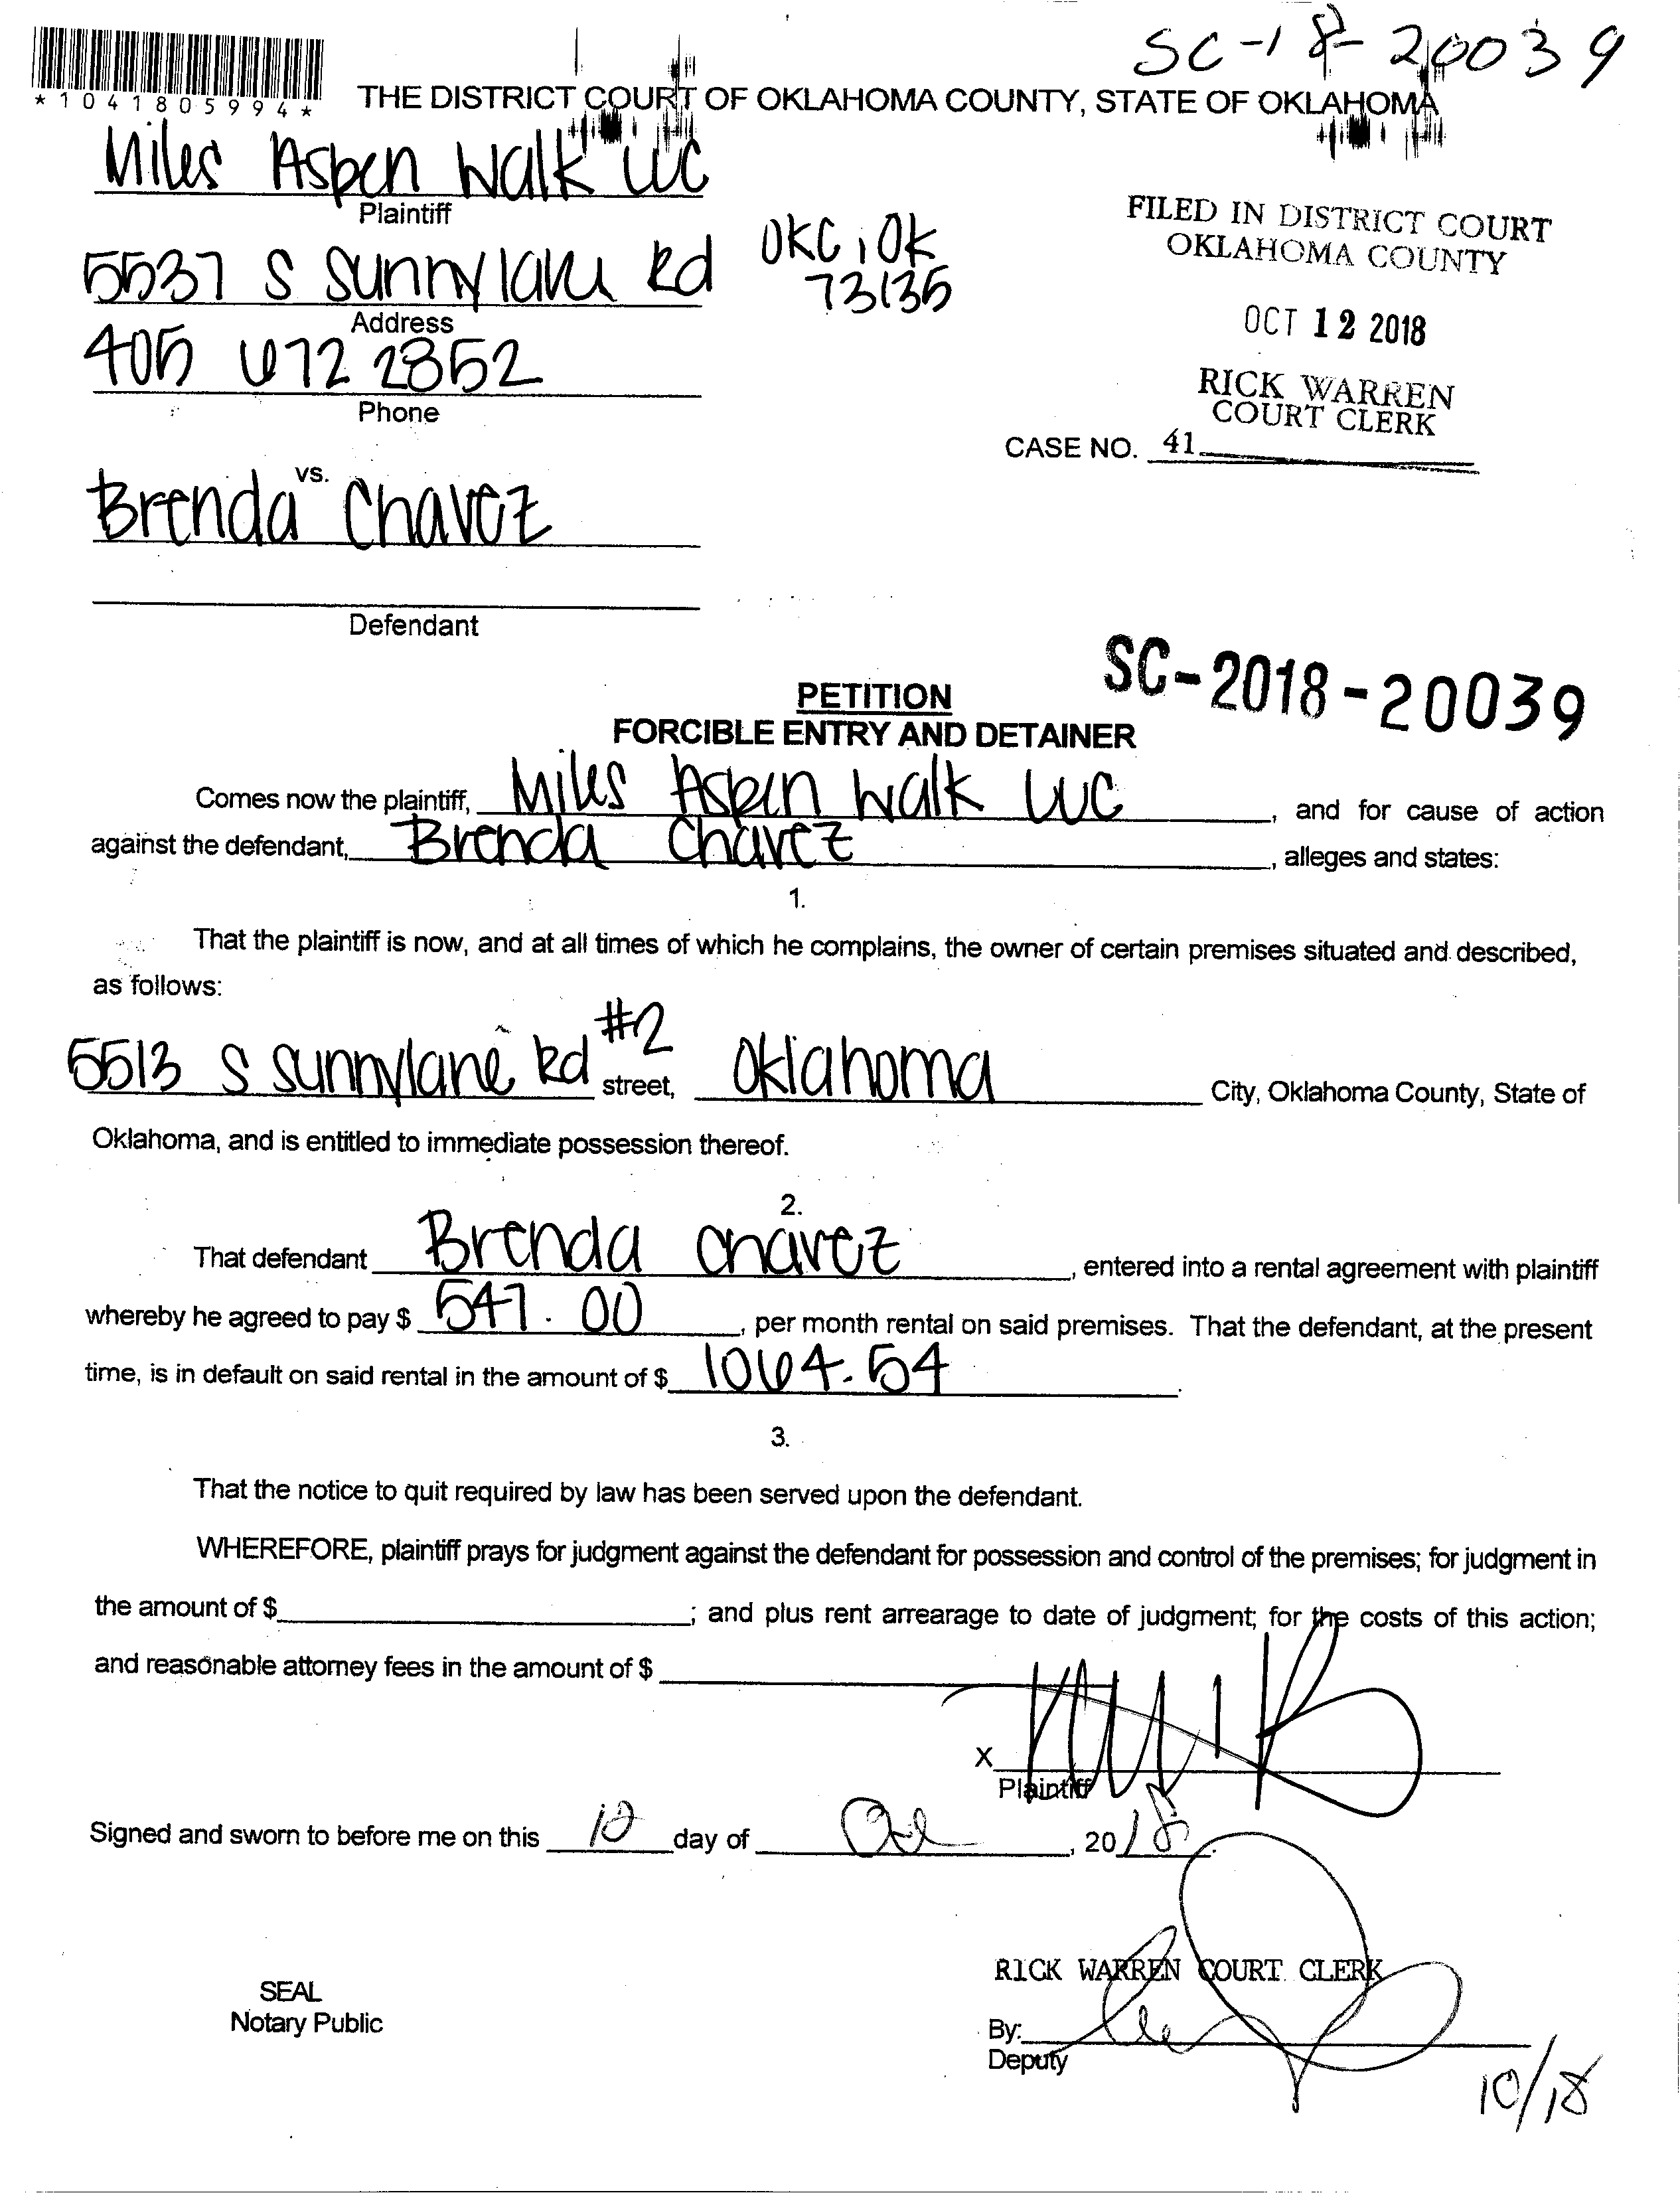 SC-18-20039
*1041805994*
THE DISTRICT COURT OF OKLAHOMA COUNTY, STATE OF OKLAHOMA
Miles Aspen Walk LLC
Plaintiff
5537 S Sunnylane Rd OKC, OK
73135
Address
405 672 2852
Phone
FILED IN DISTRICT COURT
OKLAHOMA COUNTY
OCT 12 2018
RICK WARREN
COURT CLERK
CASE NO. 41
vs.
Brenda Chavez
Defendant
SC-2018-20039
PETITION
FORCIBLE ENTRY AND DETAINER
Comes now the plaintiff, Miles Aspen Walk LLC, and for cause of action
against the defendant, Brenda Chavez, alleges and states:
1.
That the plaintiff is now, and at all times of which he complains, the owner of certain premises situated and described,
as follows:
5513 S Sunnylane Rd #2 street, Oklahoma City, Oklahoma County, State of
Oklahoma, and is entitled to immediate possession thereof.
2.
That defendant Brenda Chavez, entered into a rental agreement with plaintiff
whereby he agreed to pay $ 547.00, per month rental on said premises. That the defendant, at the present
time, is in default on said rental in the amount of $ 1064.54.
3.
That the notice to quit required by law has been served upon the defendant.
WHEREFORE, plaintiff prays for judgment against the defendant for possession and control of the premises; for judgment in
the amount of $; and plus rent arrearage to date of judgment; for the costs of this action;
and reasonable attorney fees in the amount of $
X
Plaintiff
Signed and sworn to before me on this 12 day of Oct, 2018.
RICK WARREN COURT CLERK
SEAL
Notary Public
By:
Deputy
10/18